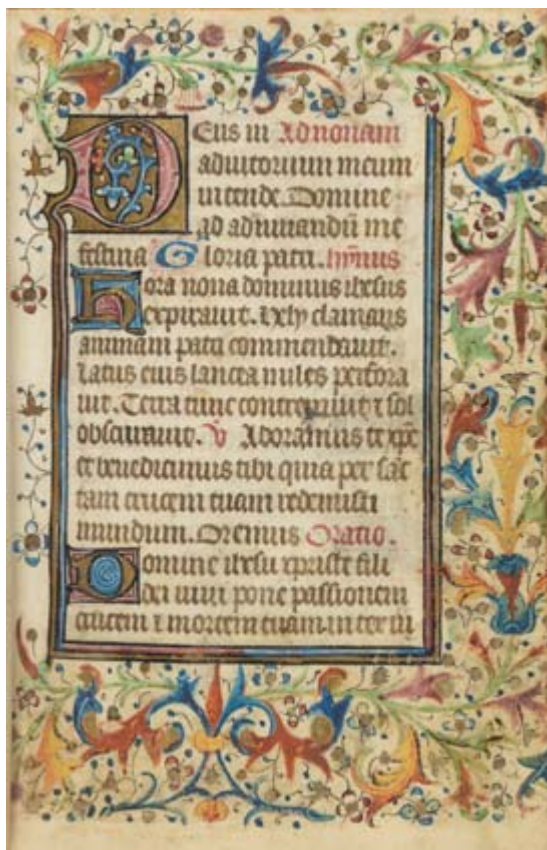 Deus in Ad nonam
adiutorium meum
intende. Domine
ad adiuuandū me
festina Gloria patri. hȳmnus
Hora nona dominus ihesus
expirauit. hely clamans
animam patri commendauit.
latus eius lancea miles perfora
uit. Terra tunc contremuit ⁊ sol
obscurauit. V Adoramus te xp̄e
et benedicimus tibi quia per sāc
tam crucem tuam redemisti
mundum. Oremus Oratio.
Domine ihesu xpriste fili
dei uiui pone passionem
crucem ⁊ mortem tuam inter iu